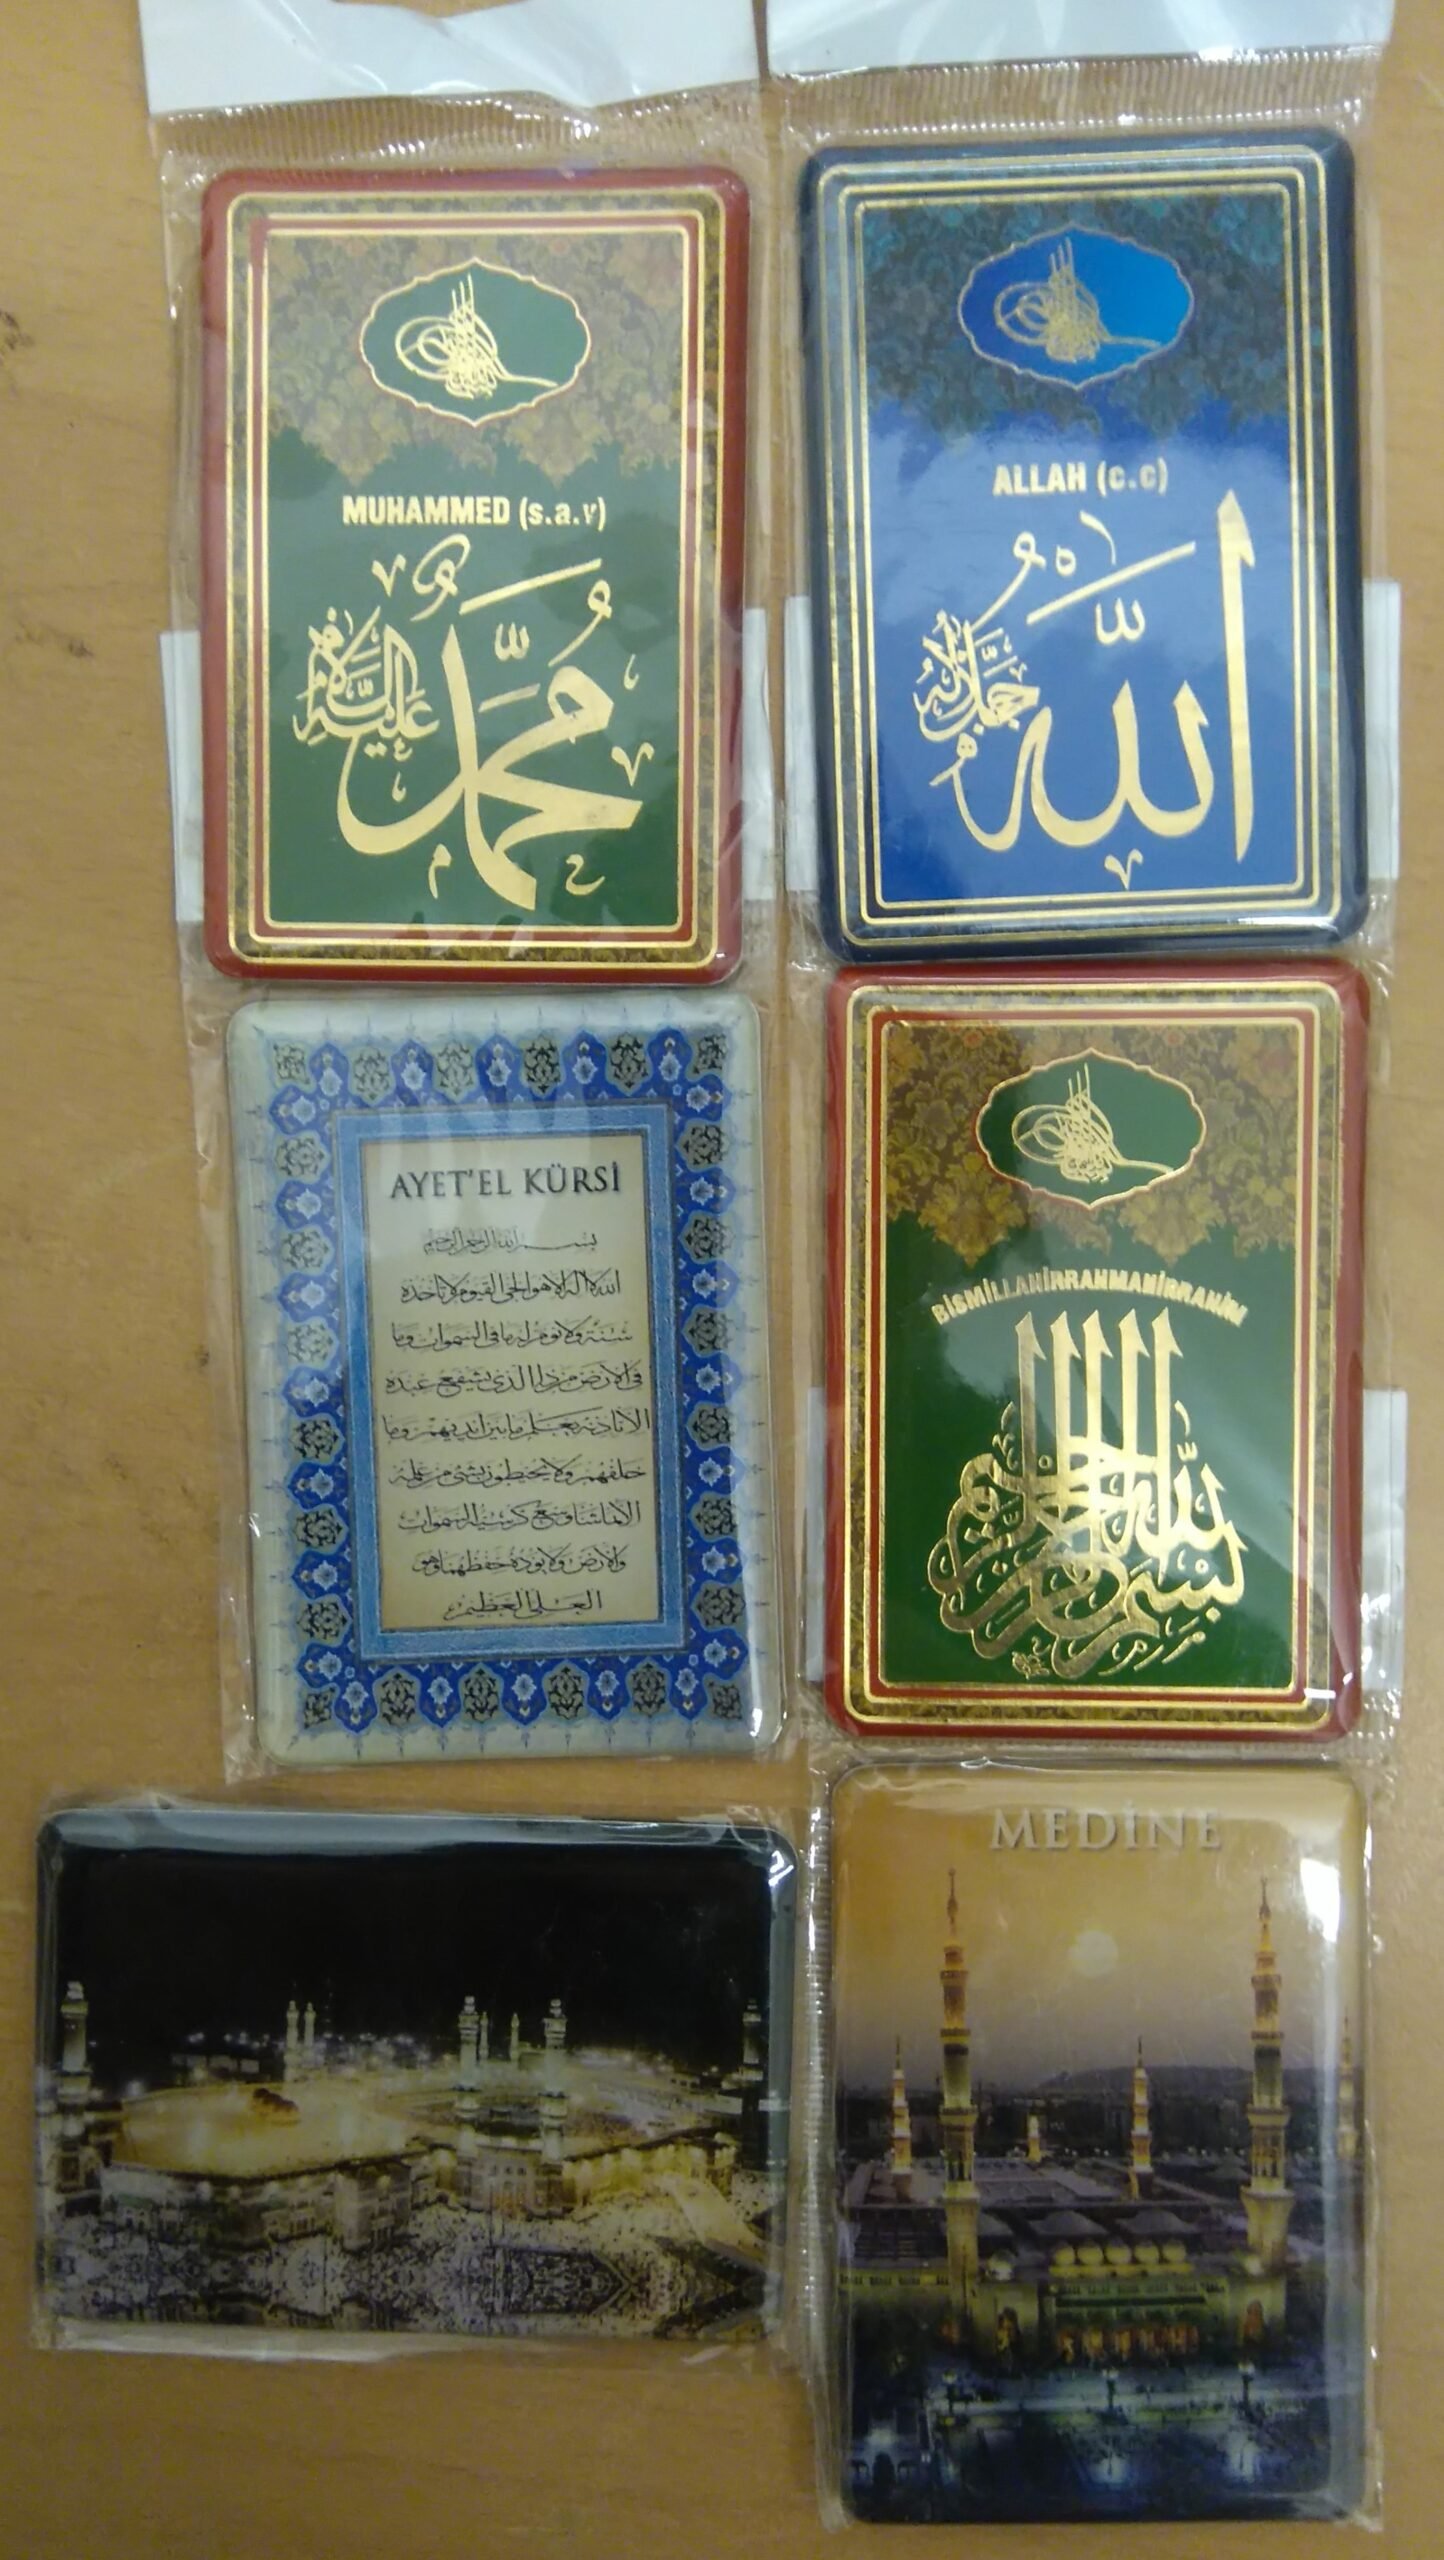 MUHAMMED (s.a.v)
محمد
عليه السلام
ALLAH (c.c)
الله
جل جلاله
AYET'EL KÜRSİ
بسم الله الرحمن الرحيم
الله لا اله الا هو الحى القيوم لا تأخذه
سنة ولا نوم له ما فى السموات وما
فى الارض من ذا الذى يشفع عنده
الا باذنه يعلم ما بين ايديهم وما
خلفهم ولا يحيطون بشئ من علمه
الا بما شاء وسع كرسيه السموات
والارض ولا يؤده حفظهما وهو
العلى العظيم
BİSMİLLAHİRRAHMANİRRAHİM
بسم الله الرحمن الرحيم
MEDİNE